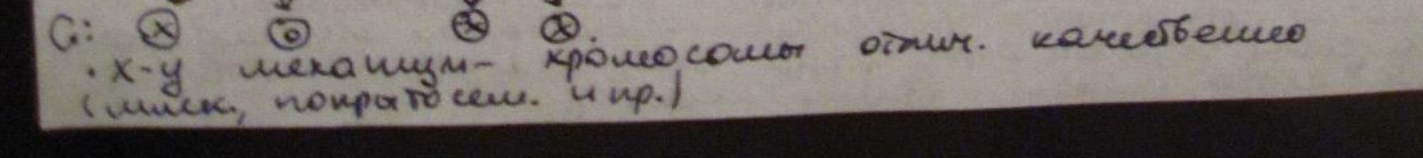 G: (x) (o) (x) (x).
· х-у механизм - хромосомы отлич. качественно
(млек., покрытосем. и пр.)